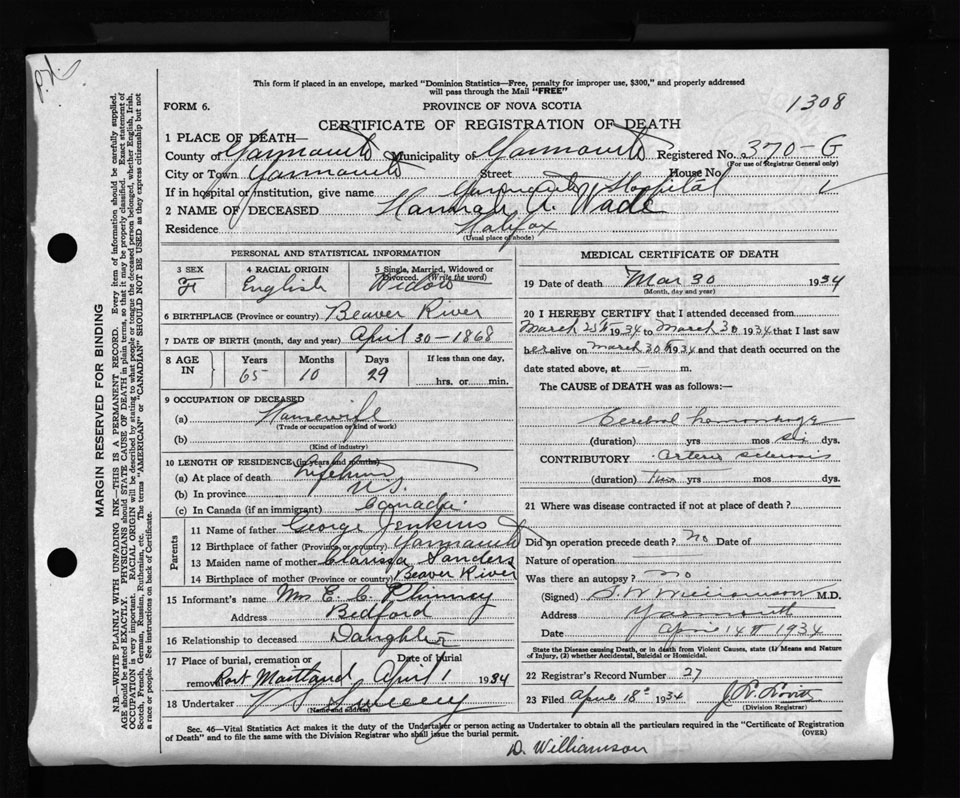 P.N.
This form if placed in an envelope, marked "Dominion Statistics—Free, penalty for improper use, $300," and properly addressed
will pass through the Mail "FREE"
FORM 6.
PROVINCE OF NOVA SCOTIA
1308
CERTIFICATE OF REGISTRATION OF DEATH
1 PLACE OF DEATH—
County of Yarmouth Municipality of Yarmouth Registered No. 370-G
(For use of Registrar General only)
City or Town Yarmouth Street House No.
If in hospital or institution, give name Yarmouth Hospital
2 NAME OF DECEASED Hannah A. Wade
Residence Halifax
(Usual place of abode)
PERSONAL AND STATISTICAL INFORMATION
3 SEX F
4 RACIAL ORIGIN English
5 Single, Married, Widowed or Divorced. (Write the word) Widow
6 BIRTHPLACE (Province or country) Beaver River
7 DATE OF BIRTH (month, day and year) April 30 - 1868
8 AGE IN Years 65 Months 10 Days 29 If less than one day, hrs. or min.
9 OCCUPATION OF DECEASED
(a) Housewife
(Trade or occupation or kind of work)
(b)
(Kind of industry)
10 LENGTH OF RESIDENCE (in years and months)
(a) At place of death Lifetime
(b) In province N.S.
(c) In Canada (if an immigrant) Canada.
Parents
11 Name of father George Jenkins
12 Birthplace of father (Province or country) Yarmouth
13 Maiden name of mother Clarissa Sanders
14 Birthplace of mother (Province or country) Beaver River
15 Informant's name Mrs E. C. Phinney
Address Bedford
16 Relationship to deceased Daughter
17 Place of burial, cremation or removal Port Maitland Date of burial April 1 1934
18 Undertaker V S Sweeny
(Name and address)
MEDICAL CERTIFICATE OF DEATH
19 Date of death Mar 30 1934
(Month, day and year)
20 I HEREBY CERTIFY that I attended deceased from
March 25th 1934 to March 30 1934 that I last saw
her alive on March 30th 1934 and that death occurred on the
date stated above, at — m.
The CAUSE of DEATH was as follows:
Cerebral hemorrhage
(duration) yrs mos six dys.
CONTRIBUTORY Arterio sclerosis
(duration) yrs mos dys.
21 Where was disease contracted if not at place of death?
Did an operation precede death? no Date of
Nature of operation
Was there an autopsy? no
(Signed) S. W. Williamson M.D.
Address Yarmouth
Date April 14th 1934
State the Disease causing Death, or in death from Violent Causes, state (1) Means and Nature
of Injury, (2) whether Accidental, Suicidal or Homicidal.
22 Registrar's Record Number 27
23 Filed April 18th 1934
(Division Registrar)
Sec. 46—Vital Statistics Act makes it the duty of the Undertaker or person acting as Undertaker to obtain all the particulars required in the "Certificate of Registration
of Death" and to file the same with the Division Registrar who shall issue the burial permit.
(OVER)
D. Williamson
MARGIN RESERVED FOR BINDING
N.B.—WRITE PLAINLY WITH UNFADING INK—THIS IS A PERMANENT RECORD. Every item of information should be carefully supplied.
AGE should be stated EXACTLY. PHYSICIANS should STATE CAUSE OF DEATH in plain terms, so that it may be properly classified. Exact statement of
OCCUPATION is very important. RACIAL ORIGIN will be described by stating to what people or tongue the deceased person belonged, whether English, Irish,
Scotch, French, German, Russian, Ruthenian, etc. The terms "AMERICAN" or "CANADIAN" SHOULD NOT BE USED as they express citizenship but not
a race or people. See instructions on back of Certificate.